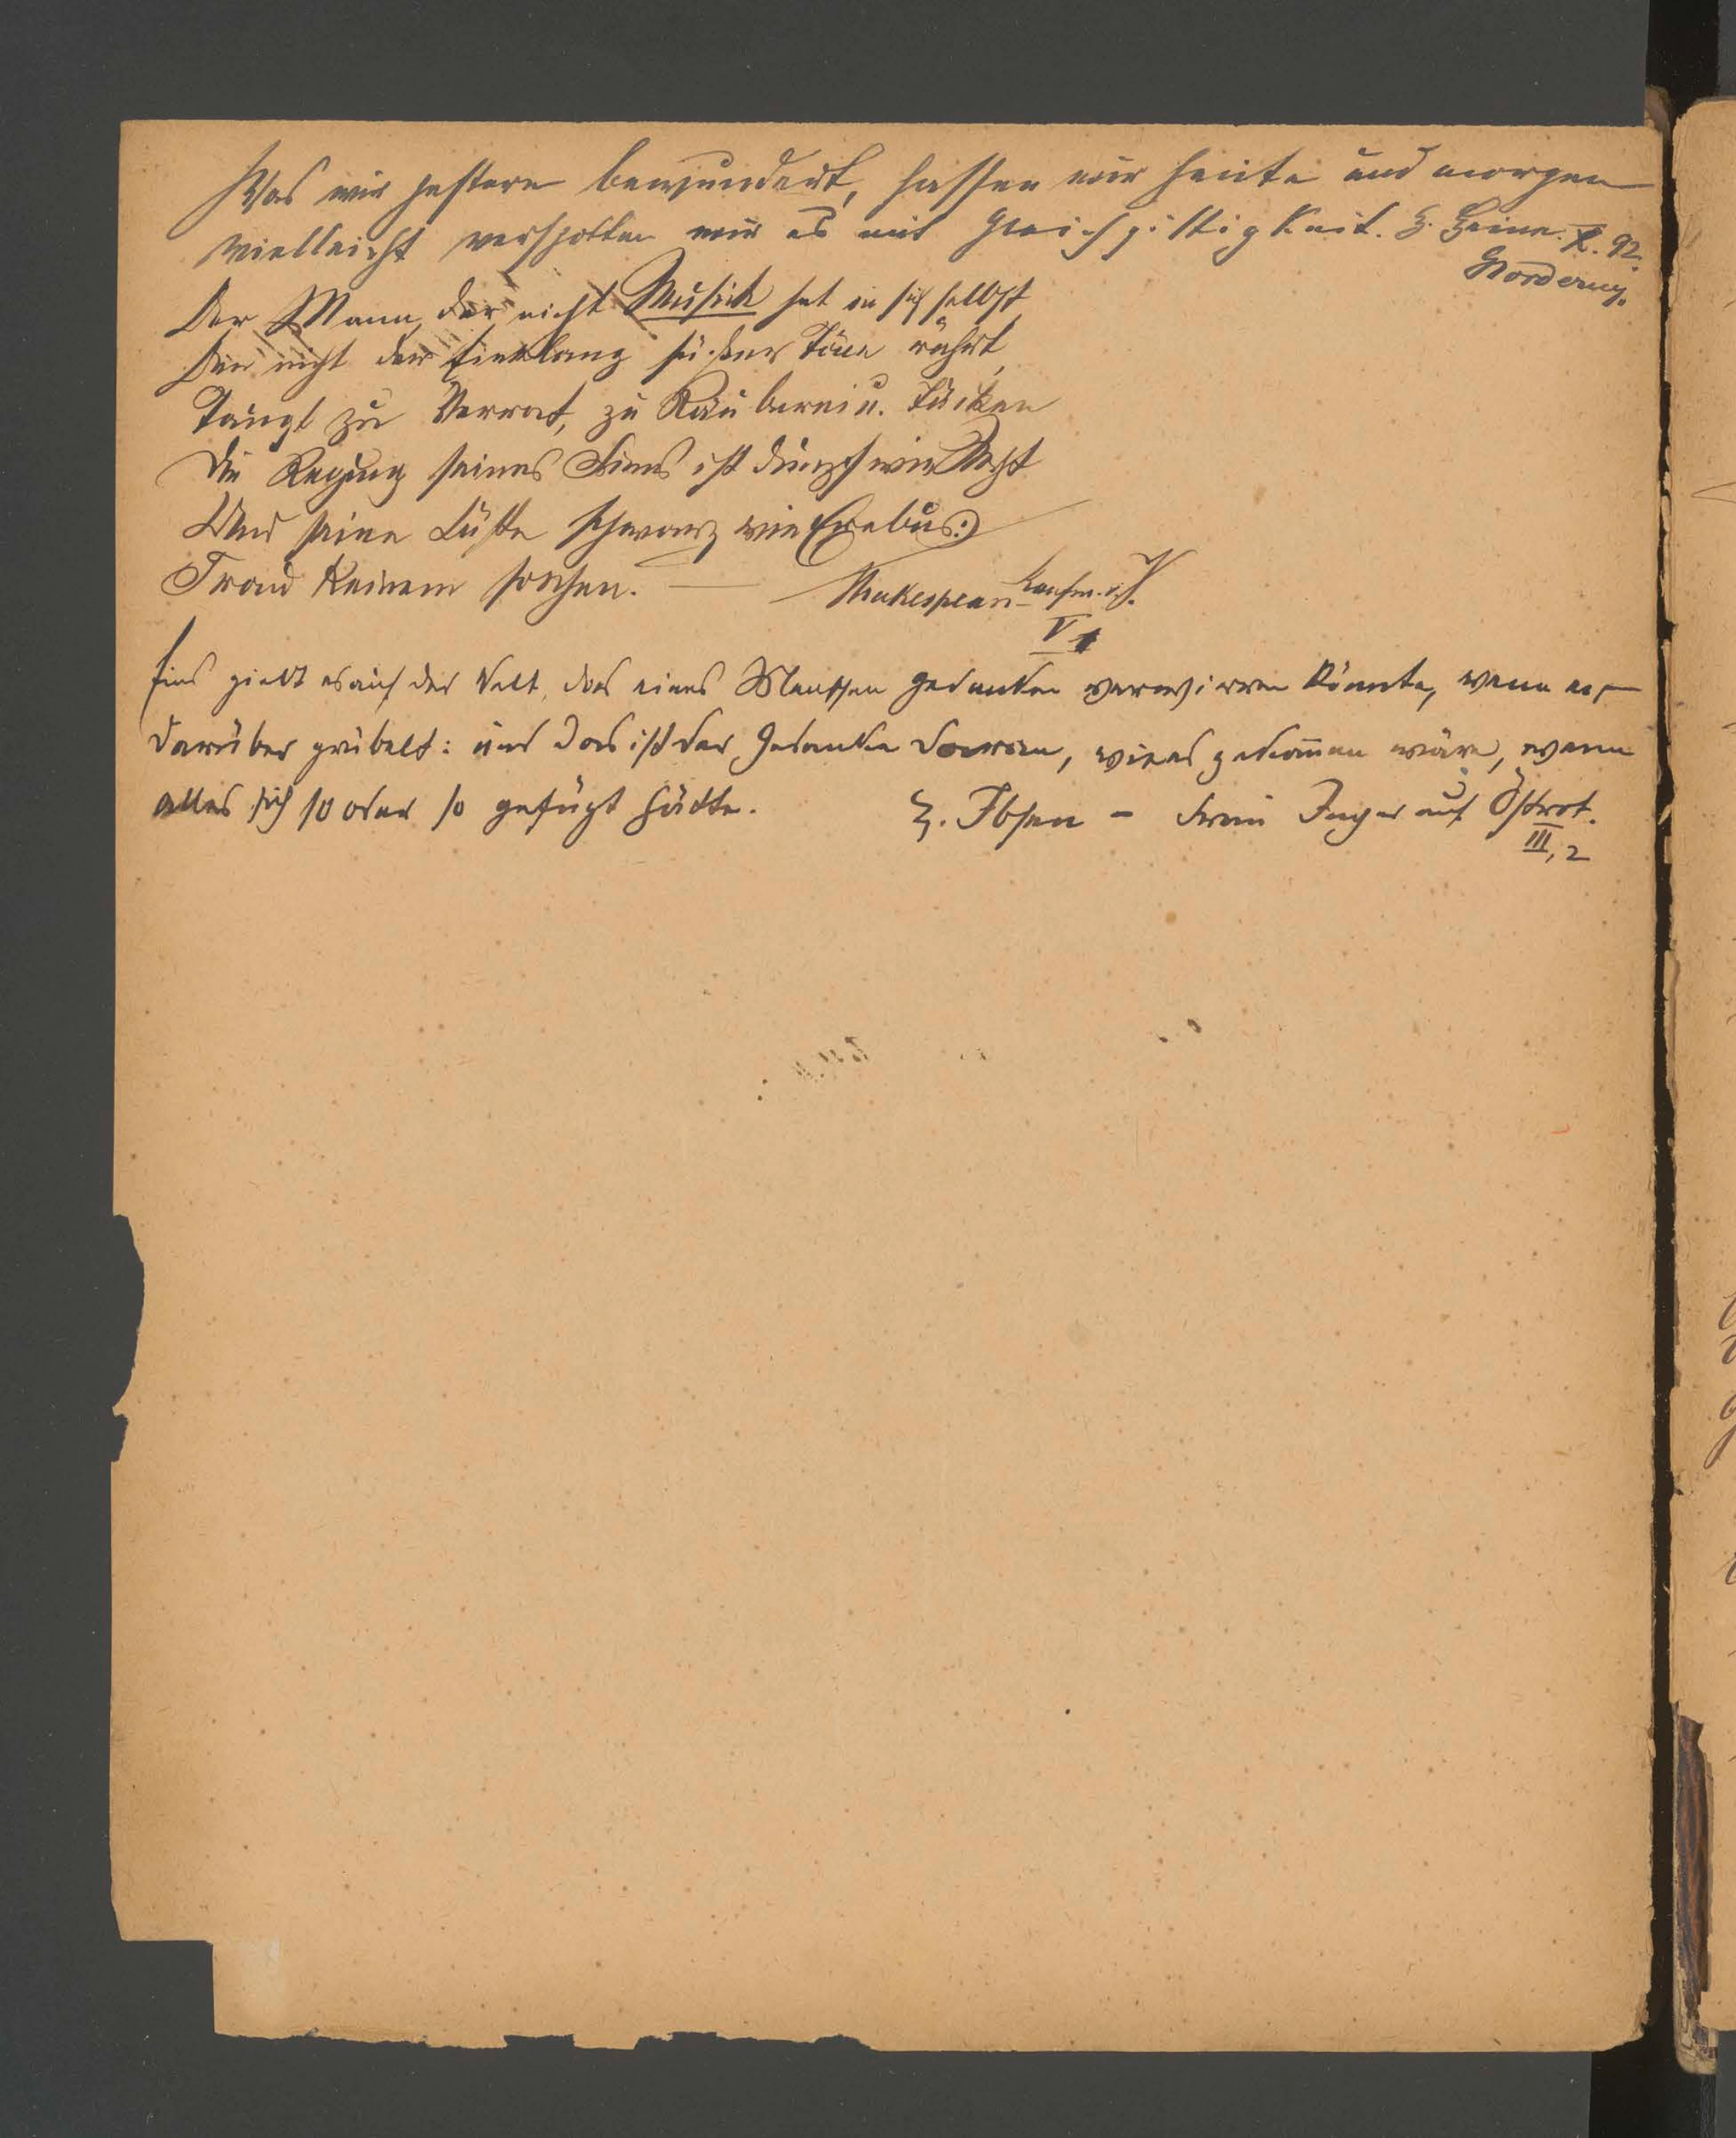 Was wir gestern bewundert, hassen wir heute und morgen
vielleicht verspotten wir es mit Gleichgiltigkeit. H. Heine. X. 92.
Norderney.
Der Mann, der nicht Musick hat in sich selbst,
Den nicht der Einklang süsser Töne rührt,
Taugt zu Verrat, zu Räuberei u. Tücken
Die Regung seines Sinns ist dumpf wie Nacht
Und seine Lüste schwarz wie Erebus:)
Trau keinem solchen. — Shakespeare Kaufm. v. V.
V 1
Eins giebt es auf der Welt, das eines Menschen Gedanken verwirren könnte, wenn er
darüber grübelt: und das ist der Gedanke daran, wie es gekom̄en wäre, wenn
alles sich so oder so gefügt hätte. H. Ibsen - Frau Inger auf Östrot.
III, 2